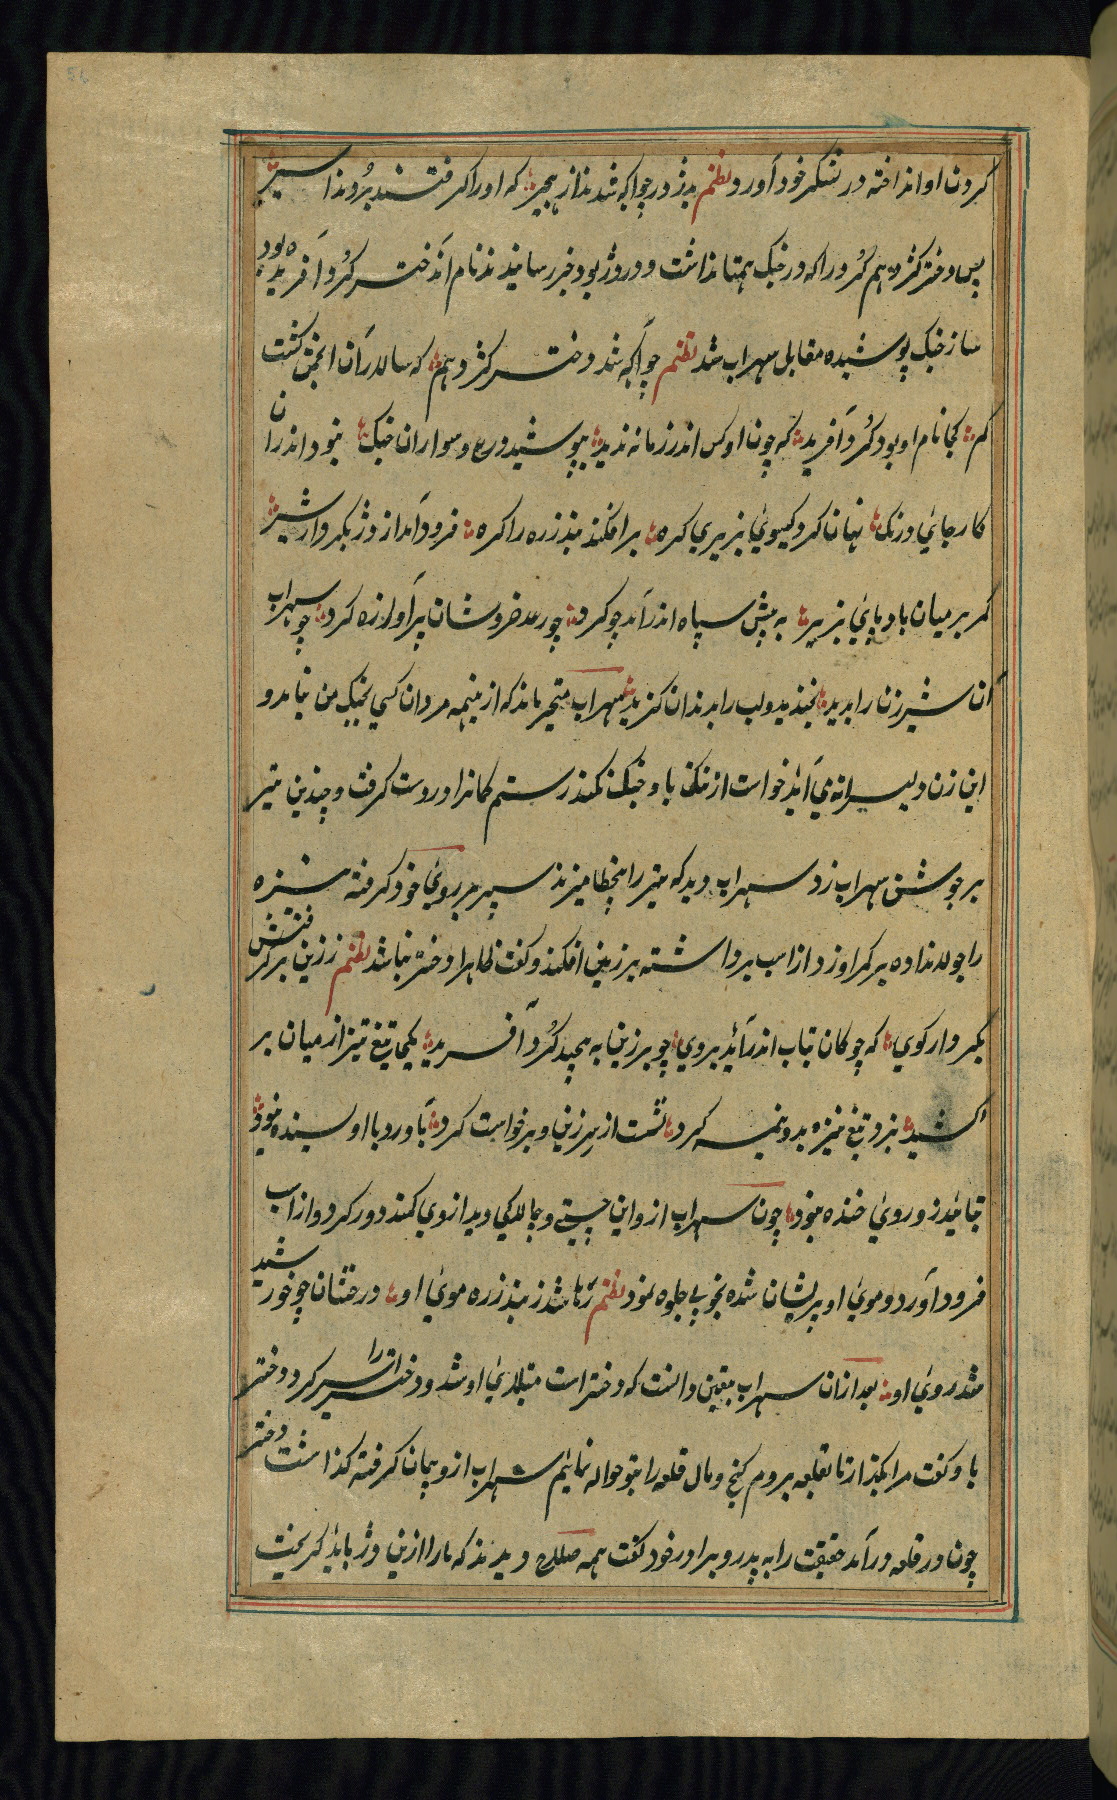 کردن او انداخته در لشکر خود آورد نظم بدژ در چو آگه شدند از هجیر که او را گرفتند بردند اسیر
پس دختر کژدهم گرد را که در جنگ همتا نداشت و در دژ بود خبر رسانیدند نام آن دختر گرد آفرید بود
ساز جنگ پوشیده مقابل سهراب شد نظم چو آگه شد دختر کژدهم که سالار آن انجمن گشت
کم کجا نام او بود گرد آفرید که چون او کس اندر زمانه ندید بپوشید درع سواران جنگ نبود اندران
کار جای درنگ نهان کرد گیسوی بزیر زره برافکند بند زره را گره فرود آمد از دژ بکردار شیر
کمر بر میان بادپای بزیر به پیش سپاه اندر آمد چو گرد چو رعد خروشان پر آوازه کرد چو سهراب
آن شیرزن را بدید بخندید و لب را بدندان گزید سهراب متحیر ماند که از ینهمه مردان کسی بجنگ من نیامد و
این زن دلیرانه می آید خواست از ننگ با و جنگ نکند رستم کمان را در دست گرفت و چندین تیر
بر جوشن سهراب زد سهراب دید که تیر را بخطا میزند سپر بر روی خود گرفته نیزه
را جولان داده بر کمر او زد از اسب برداشته بر زمین افکند و گفت ظاهرا دختر نباشد نظم ز زین برگرفتش
بکردار گوی که چوگان بتاب اندر آید بروی چو بر زین به پیچید گرد آفرید یکی تیغ تیز از میان بر
کشید بزد تیغ نیزه بدو نیمه کرد نشست از بر زین و برخواست گرد بآورد با او بسنده نبود
بتابید زو روی خنده نمود چون سهراب از و این چستی و چالاکی دید از وی کمند دور کرد و از اسب
فرود آورد و موی او پریشان شده بخوبی جلوه نمود نظم رها شد ز بند زره موی او درخشان چو خورشید
شد روی او بعد ازان سهراب بیقین دانست که دختر است مبتلای او شد و دختر را اسیر کرد دختر
با و گفت مرا بگذار تا بقلعه بروم گنج و مال قلعه را بتو حواله نمایم سهراب از و پیمان گرفته گذاشت دختر
چون در قلعه در آمد حقیقت را به پدر و برادر خود گفت همه صلاح دیدند که ما را ازین دژ باید گریخت